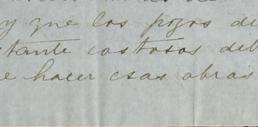 y que los pozos de
tante costosos deb
e hacer esas obras